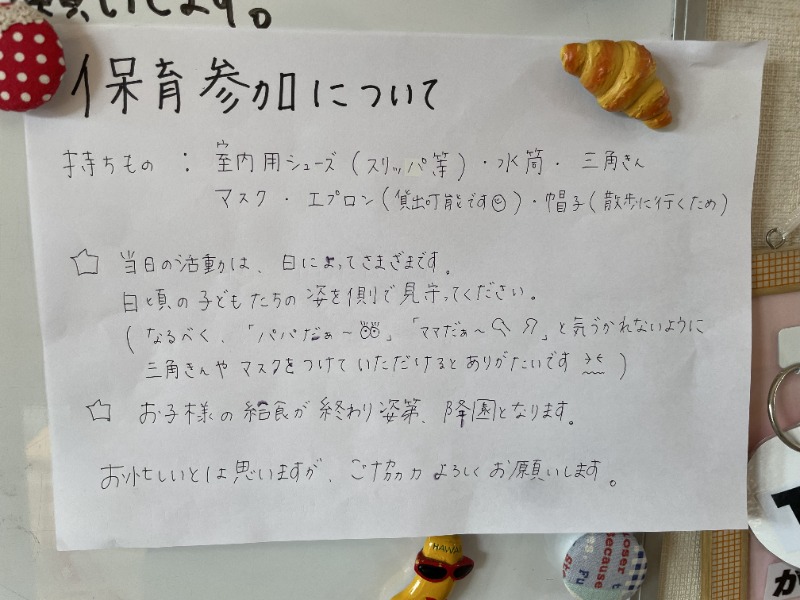 願いします。
保育参加について
持ちもの : 室内用シューズ(スリッパ等)・水筒・三角きん
マスク・エプロン(貸出可能です☺)・帽子(散歩に行くため)
☆ 当日の活動は、日によってさまざまです。
日頃の子どもたちの姿を側で見守ってください。
(なるべく、「パパだぁ~」「ママだぁ~」と気づかれないように
三角きんやマスクをつけていただけるとありがたいです)
☆ お子様の給食が終わり次第、降園となります。
お忙しいとは思いますが、ご協力よろしくお願いします。
HAWAII
Because